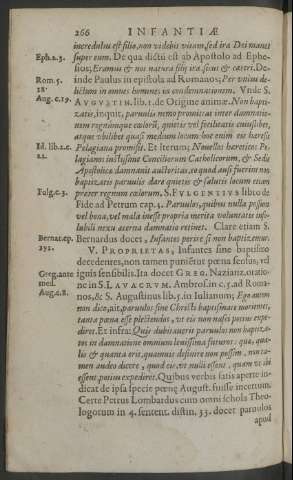 266 INFANTIÆ
incredulus est filio, non videbit vitam, sed ira Dei manet
Eph.2.3. super eum. De qua dictũ est ab Apostolo ad Ephe-
sios; Eramus & nos natura filij iræ, sicut & cæteri. De-
Rom. 5. inde Paulus in epistola ad Romanos; Per vnius de-
18. lictum in omnes homines in condemnationem. Vnde S.
Aug. c.19. AVGVSTIN. lib. 1. de Origine animæ. Non bapti-
zatis, inquit, paruulis nemo promittat inter damnatio-
nem regnúmque cælorũ, quietis vel fœlicitatis cuiuslibet,
atque vbilibet quasi medium locum: hoc enim eis hæresis
Id. lib.2.c. Pelagiana promisit. Et iterum; Nouellos hæreticos Pe-
12. lagianos iustissimè Conciliorum Catholicorum, & Sedis
Apostolicæ damnauit auctoritas, eo quòd ausi fuerint nõ
baptizatis paruulis dare quietis & salutis locum etiam
Fulg.c.3. præter regnum cælorum. S. FVLGENTIVS libro de
Fide ad Petrum cap. 3. Paruulos, quibus nulla possion
vel bona, vel mala inesse propria merita voluntatis, infi-
lubili nexu æterna damnatio retinet. Clarè etiam S.
Bernar.ep. Bernardus docet, Infantes perire si non baptizẽtur.
V. PROPRIETAS, Infantes sine baptismo
decedentes, non tamen puniẽtur pœna sensus, vel
Greg.ante ignis sensibilis. Ita docet GREG. Nazianz. oratio-
med. ne in S. LAVACRVM. Ambros. in c. 5. ad Roma-
Aug.c.8. nos, & S. Augustinus lib. 5. in Iulianum; Ego autem
non dico, ait, paruulos sine Christi baptismate morientes,
tanta pœna esse plectendos, vt eis non nasci potius expe-
diret. Et infra: Quis dubitauerit paruulos non baptiza-
tos in damnatione omnium leuissima futuros: quæ, qua-
lis & quanta erit, quamuis definire non possim, non ta-
men audeo dicere, quod eis, vt nulli essent, quàm vt ibi
essent, potius expediret. Quibus verbis satis aperte in-
dicat de ipsa specie pœnę August. fuisse incertum.
Certè Petrus Lombardus cum omni schola Theo-
logorum in 4. sentent. distin. 33. docet paruulos
apud